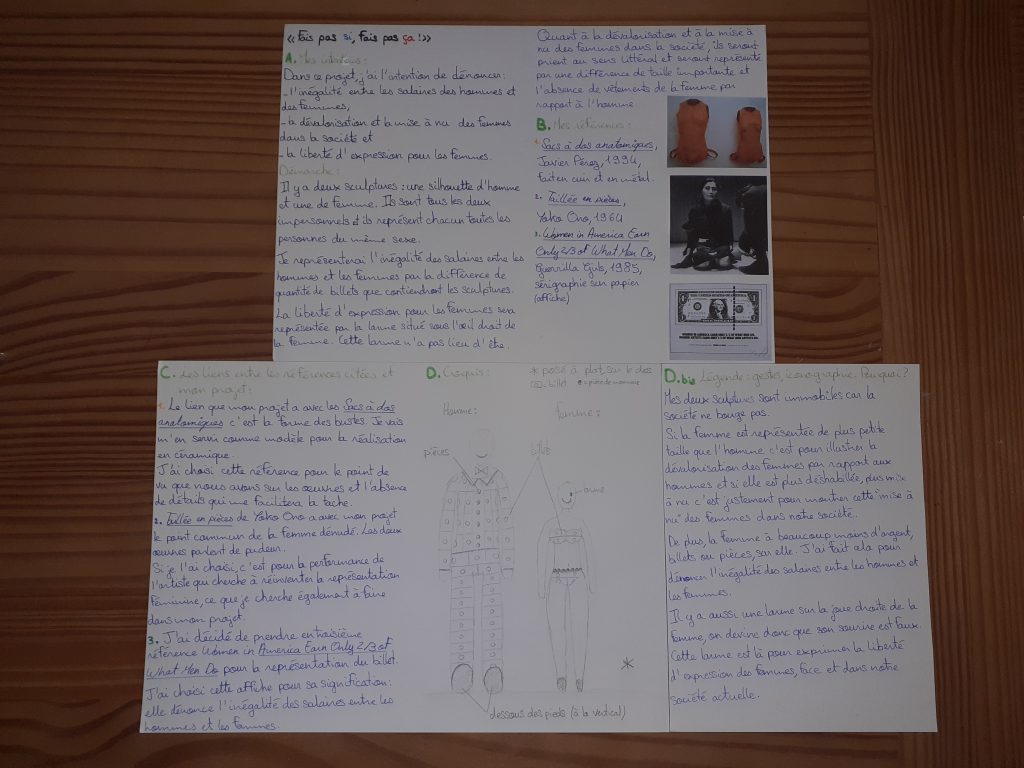 « Fais pas si, fais pas ça ! »
A. Mes intentions :
Dans ce projet, j'ai l'intention de dénoncer :
- l'inégalité entre les salaires des hommes et
des femmes,
- la dévalorisation et la mise à nu des femmes
dans la société et
- la liberté d'expression pour les femmes.
Démarche :
Il y a deux sculptures : une silhouette d'homme
et une de femme. Ils sont tous les deux
impersonnels et ils représent chacun toutes les
personnes du même sexe.
Je représenterai l'inégalité des salaires entre les
hommes et les femmes par la différence de
quantité de billets que contiendront les sculptures.
La liberté d'expression pour les femmes sera
représentée par la larme situé sous l'œil droit de
la femme. Cette larme n'a pas lieu d'être.
Quant à la dévalorisation et à la mise à
nu des femmes dans la société, ils seront
prient au sens littéral et seront représenté
par une différence de taille importante et
l'absence de vêtements de la femme par
rapport à l'homme
B. Mes références :
1. Sacs à dos anatomiques,
Javier Pérez, 1994,
fait en cuir et en métal.
2. Taillée en pièces,
Yoko Ono, 1964
3. Women in America Earn
Only 2/3 of What Men Do,
Guerrilla Girls, 1985,
sérigraphie sur papier
(affiche)
C. Les liens entre les références citées et
mon projet :
1. Le lien que mon projet a avec les Sacs à dos
anatomiques c'est la forme des bustes. Je vais
m'en servir comme modèle pour la réalisation
en céramique.
J'ai choisi cette référence pour le point de
vu que nous avons sur les œuvres et l'absence
de détails qui me facilitera la tache.
2. Taillée en pièces de Yoko Ono a avec mon projet
le point commun de la femme dénudé. Les deux
œuvres parlent de pudeur.
Si je l'ai choisi, c'est pour la performance de
l'artiste qui cherche à réinventer la représentation
féminine, ce que je cherche également à faire
dans mon projet.
3. J'ai décidé de prendre en troisième
référence Women in America Earn Only 2/3 of
What Men Do pour la représentation du billet.
J'ai choisi cette affiche pour sa signification :
elle dénonce l'inégalité des salaires entre les
hommes et les femmes.
D. Croquis :
* posé à plat, sur le dos
billet
Homme :
femme :
pièces
billets
larme
*
dessous des pieds (à la vertical)
D.bis Légende : gestes, iconographie. Pourquoi ?
Mes deux sculptures sont immobiles car la
société ne bouge pas.
Si la femme est représentée de plus petite
taille que l'homme c'est pour illustrer la
dévalorisation des femmes par rapport aux
hommes et si elle est plus déshabillée, plus mise
à nu c'est justement pour montrer cette "mise à
nu" des femmes dans notre société.
De plus, la femme à beaucoup moins d'argent,
billets ou pièces, sur elle. J'ai fait cela pour
dénoncer l'inégalité des salaires entre les hommes et
les femmes.
Il y a aussi une larme sur la joue droite de la
femme, on devine donc que son sourire est faux.
Cette larme est là pour exprimer la liberté
d'expression des femmes, face et dans notre
société actuelle.